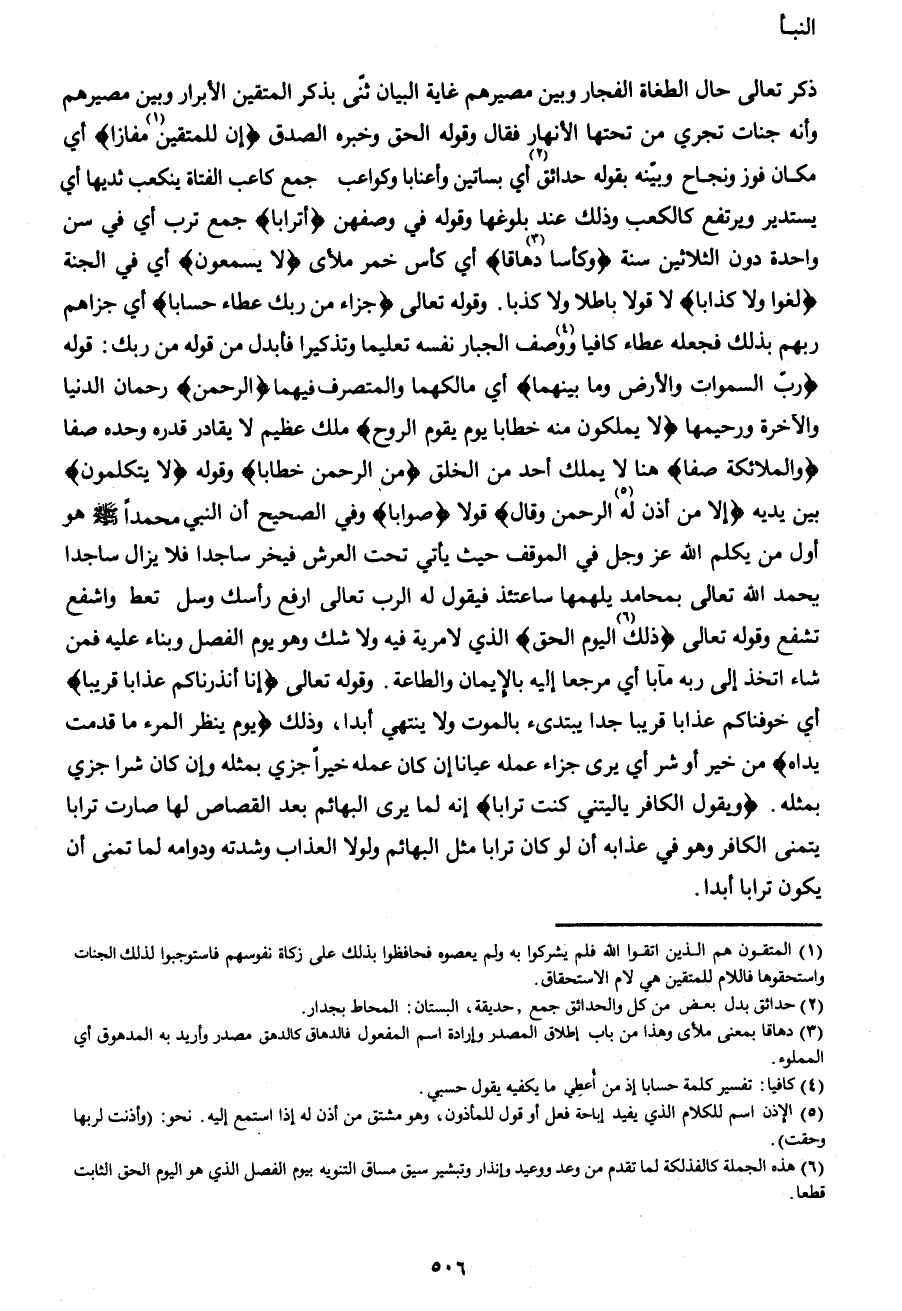 النبأ
ذكر تعالى حال الطغاة الفجار وبين مصيرهم غاية البيان ثنّى بذكر المتقين الأبرار وبين مصيرهم
وأنه جنات تجري من تحتها الأنهار فقال وقوله الحق وخبره الصدق ﴿إن للمتقين(١) مفازا﴾ أي
مكان فوز ونجاح وبيّنه بقوله حدائق(٢) أي بساتين وأعنابا وكواعب جمع كاعب الفتاة ينكعب ثديها أي
يستدير ويرتفع كالكعب وذلك عند بلوغها وقوله في وصفهن ﴿أترابا﴾ جمع ترب أي في سن
واحدة دون الثلاثين سنة ﴿وكأسا دهاقا(٣)﴾ أي كأس خمر ملأى ﴿لا يسمعون﴾ أي في الجنة
﴿لغوا ولا كذابا﴾ لا قولا باطلا ولا كذبا. وقوله تعالى ﴿جزاء من ربك عطاء حسابا﴾ أي جزاهم
ربهم بذلك فجعله عطاء كافيا(٤) ووصف الجبار نفسه تعليما وتذكيرا فأبدل من قوله من ربك: قوله
﴿ربّ السموات والأرض وما بينهما﴾ أي مالكهما والمتصرف فيهما ﴿الرحمن﴾ رحمان الدنيا
والآخرة ورحيمها ﴿لا يملكون منه خطابا يوم يقوم الروح﴾ ملك عظيم لا يقادر قدره وحده صفا
﴿والملائكة صفا﴾ هنا لا يملك أحد من الخلق ﴿من الرحمن خطابا﴾ وقوله ﴿لا يتكلمون﴾
بين يديه ﴿إلا من أذن له(٥) الرحمن وقال﴾ قولا ﴿صوابا﴾ وفي الصحيح أن النبي محمداً ﷺ هو
أول من يكلم الله عز وجل في الموقف حيث يأتي تحت العرش فيخر ساجدا فلا يزال ساجدا
يحمد الله تعالى بمحامد يلهمها ساعتئذ فيقول له الرب تعالى ارفع رأسك وسل تعط واشفع
تشفع وقوله تعالى ﴿ذلك(٦) اليوم الحق﴾ الذي لامرية فيه ولا شك وهو يوم الفصل وبناء عليه فمن
شاء اتخذ إلى ربه مآبا أي مرجعا إليه بالإيمان والطاعة. وقوله تعالى ﴿إنا أنذرناكم عذابا قريبا﴾
أي خوفناكم عذابا قريبا جدا يبتدىء بالموت ولا ينتهي أبدا، وذلك ﴿يوم ينظر المرء ما قدمت
يداه﴾ من خير أو شر أي يرى جزاء عمله عيانا إن كان عمله خيراً جزي بمثله وإن كان شرا جزي
بمثله. ﴿ويقول الكافر ياليتني كنت ترابا﴾ إنه لما يرى البهائم بعد القصاص لها صارت ترابا
يتمنى الكافر وهو في عذابه أن لو كان ترابا مثل البهائم ولولا العذاب وشدته ودوامه لما تمنى أن
يكون ترابا أبدا.
(١) المتقون هم الذين اتقوا الله فلم يشركوا به ولم يعصوه فحافظوا بذلك على زكاة نفوسهم فاستوجبوا لذلك الجنات
واستحقوها فاللام للمتقين هي لام الاستحقاق.
(٢) حدائق بدل بعض من كل والحدائق جمع ,حديقة، البستان: المحاط بجدار.
(٣) دهاقا بمعنى ملأى وهذا من باب إطلاق المصدر وإرادة اسم المفعول فالدهاق كالدهق مصدر وأريد به المدهوق أي
المملوء.
(٤) كافيا: تفسير كلمة حسابا إذ من أُعطِي ما يكفيه يقول حسبي.
(٥) الإذن اسم للكلام الذي يفيد إباحة فعل أو قول للمأذون، وهو مشتق من أذن له إذا استمع إليه. نحو: (وأذنت لربها
وحقت).
(٦) هذه الجملة كالفذلكة لما تقدم من وعد ووعيد وإنذار وتبشير سيق مساق التنويه بيوم الفصل الذي هو اليوم الحق الثابت
قطعا.
٥٠٦